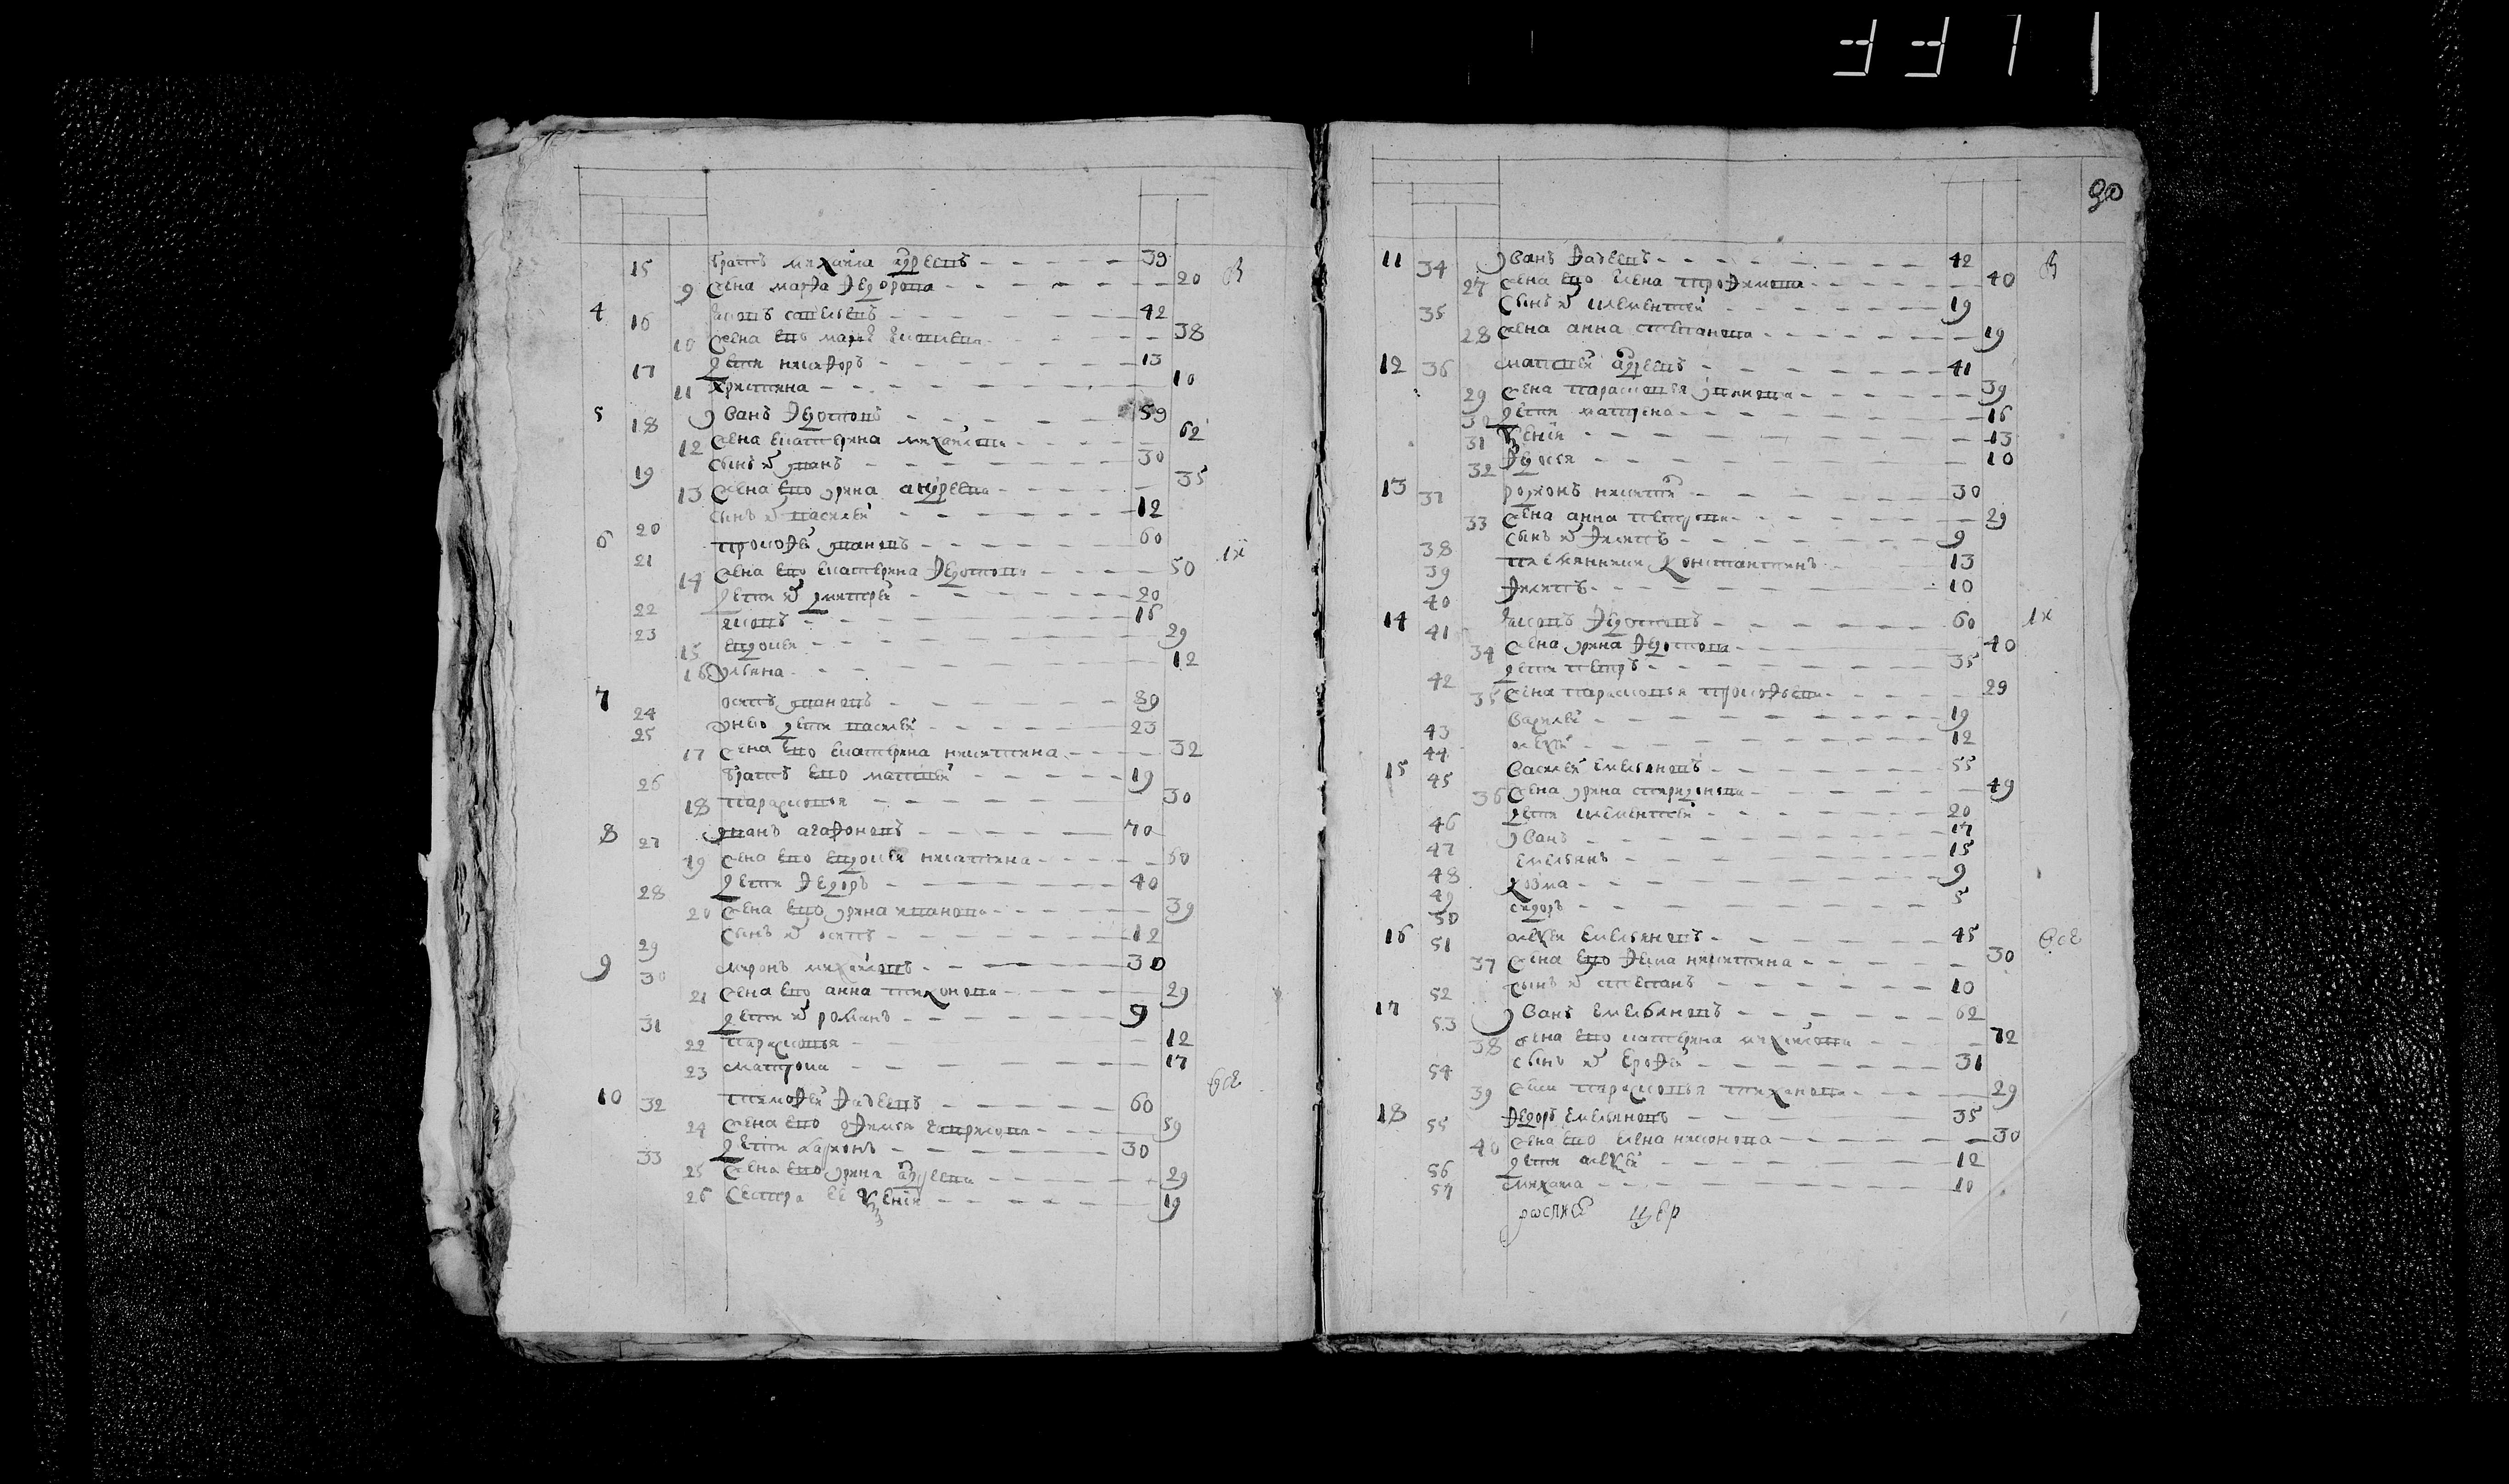 90
15 братъ михаила адреевъ 39 В
9 жена марфа федорова 20
4 16 яковъ савельевъ 42
10 жена ево марья 38
17 дети никифоръ 13
11 христина 10
5 18 иванъ федотовъ 59
12 жена екатерина михаилова 62
19 сынъ иванъ 30
13 жена ево ирина андреева 35
20 сынъ василей 12
6 21 прокофей ивановъ 60 1х
14 жена ево екатерина федотова 50
22 дети дмитрей 20
23 яковъ 16
15 евдокея 29
16 ульяна 12
7 24 осипъ ивановъ 89
25 оного дети василей 23
17 жена ево екатерина никитина 32
26 братъ ево матвей 19
18 парасковья 30
8 27 иванъ агафоновъ 70
19 жена ево евдокея никитина 50
28 дети федоръ 40
20 жена ево ирина иванова 39
29 сынъ осипъ 12
9 30 миронъ михаиловъ 30
21 жена ево анна тихонова 29
31 дети романъ 9
22 парасковья 12
23 матрона 17
10 32 тимофей фадеевъ 60 все
24 жена ево афимья гаврилова 59
33 дети ларионъ 30
25 жена ево ирина адреева 29
26 сестра ее ксения 19
11 34 иванъ фадеевъ 42 В
27 жена ево елена трофимова 40
35 сынъ клементей 19
28 жена анна степанова 19
12 36 матвей адреевъ 41
29 жена парасковья иванова 39
30 дети матрена 16
31 ксения 13
32 федосья 10
13 37 родионъ никитин 30
33 жена анна петрова 29
38 сынъ филипъ 9
39 племянники константинъ 13
40 филипъ 10
14 41 яковъ федотовъ 60 1х
34 жена ирина федотова 40
42 дети петръ 35
35 жена парасковья прокофьева 29
43 василей 19
44 алексей 12
15 45 василей емельяновъ 55
36 жена ирина спиридонова 49
46 дети клементей 20
47 иванъ 17
48 емельянъ 15
49 козма 9
50 сидоръ 5
16 51 алексей емельяновъ 45 все
37 жена ево фекла никитина 30
52 сынъ степанъ 10
17 53 иванъ емельяновъ 62
38 жена ево катерина михаилова 72
54 сынъ ерофей 31
39 жена парасковья тихонова 29
18 55 федоръ емельяновъ 35
40 жена ево елена никонова 30
56 дети алексей 12
57 михаила 10